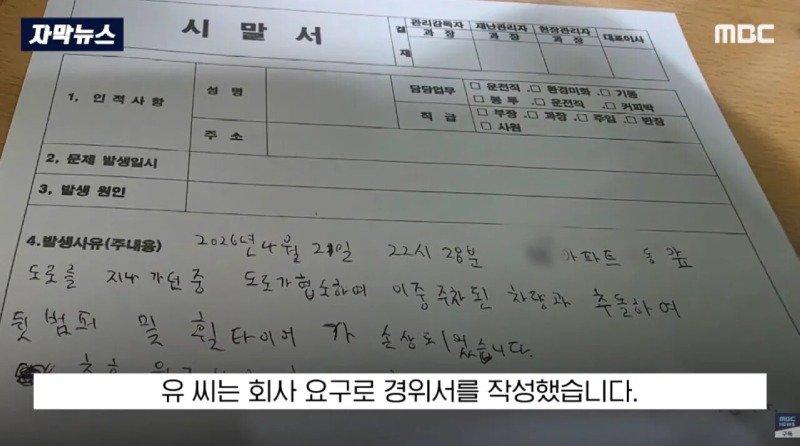 자막뉴스
MBC
시 말 서
결 재
관리감독자 재난관리자 현장관리자 대표이사
과 장 과 장 과 장
1. 인 적 사 항
성 명
담당업무
□ 운전직 .□ 환경미화 .□ 기동
□ 봉 투 .□ 운전직 .□ 커피박
주 소
직 급
□ 부장 .□ 과장 .□ 주임 .□ 반장
□ 사원
2. 문제 발생일시
3. 발생 원인
4.발생사유(주내용) 2026년 4월 21일 22시 28분 아파트
도로를 지나 가던 중 도로가 협소하여 이중 주차된 차량과 추돌하여
뒷 범퍼 및 휠 타이어 가 손상되었습니다.
유 씨는 회사 요구로 경위서를 작성했습니다.
MBC
NEWS
구독